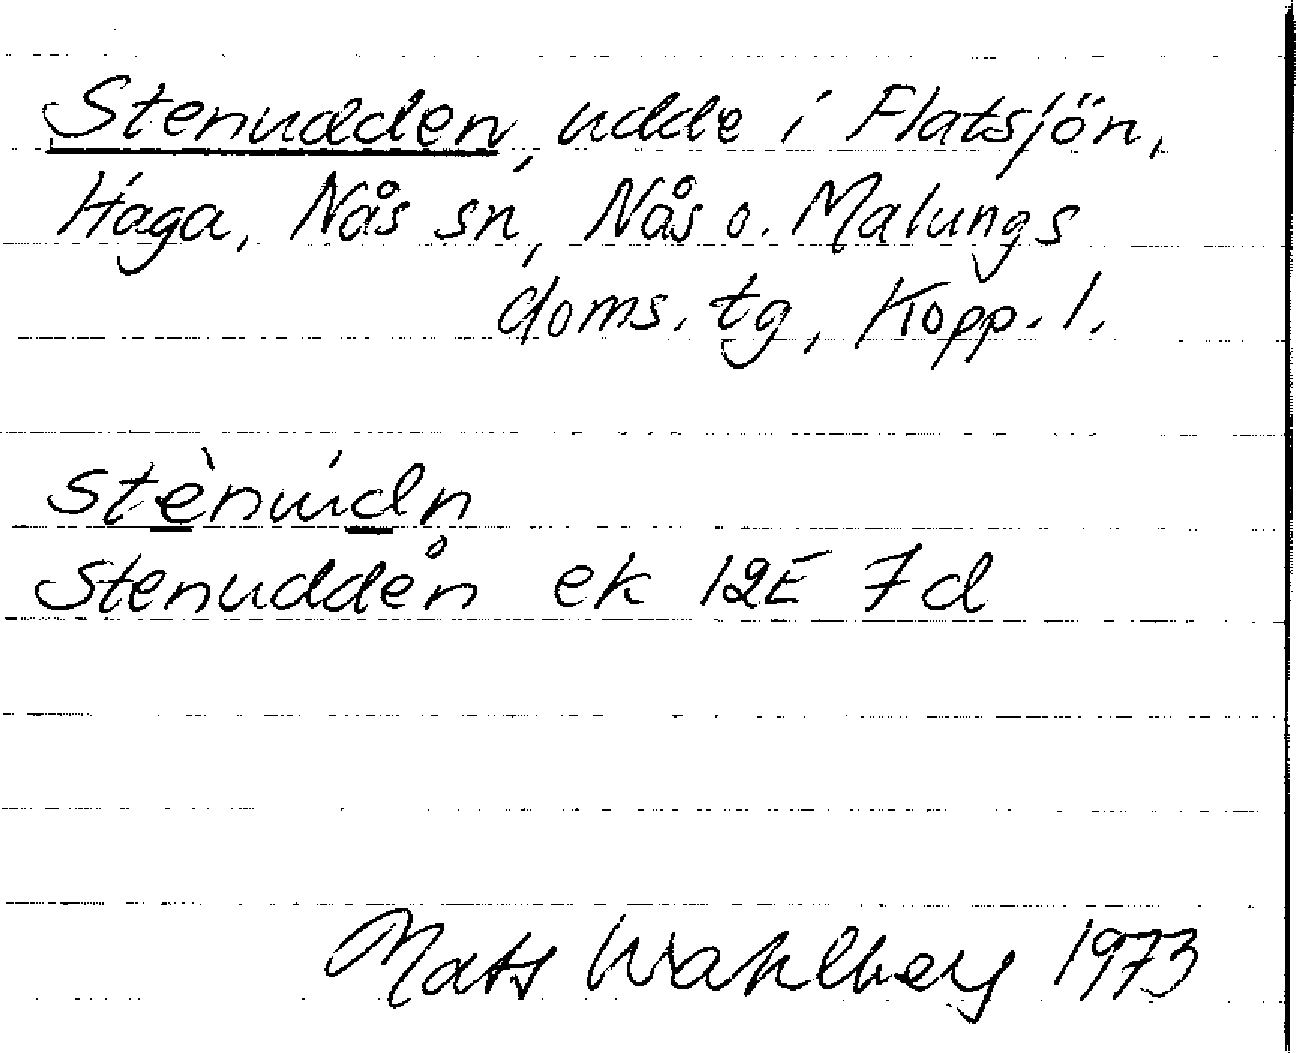 Stenudden, udde i Flatsjön,
Haga, Nås sn, Nås o. Malungs
doms. tg, Kopp. l.
stènúdn
Stenudden ek 12E 7d
Mats Wahlberg 1973